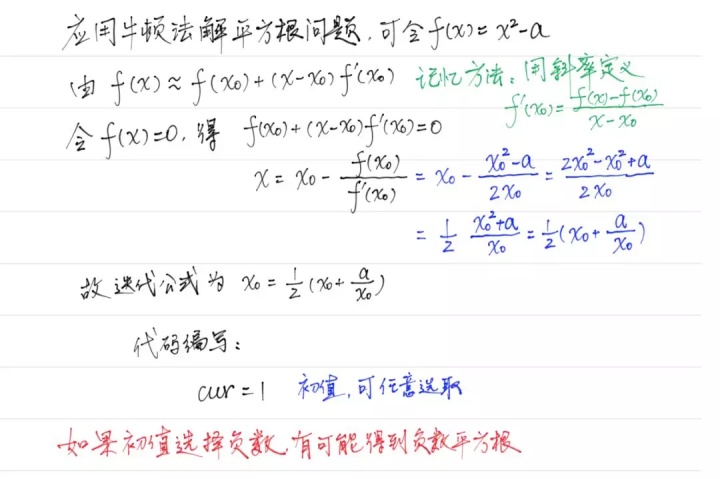 应用牛顿法解平方根问题，可令f(x)=x²-a
由 f(x)≈f(x₀)+(x-x₀)f'(x₀) 记忆方法：用斜率定义
f'(x₀)=\frac{f(x)-f(x₀)}{x-x₀}
令f(x)=0，得 f(x₀)+(x-x₀)f'(x₀)=0
x=x₀-\frac{f(x₀)}{f'(x₀)}=x₀-\frac{x₀²-a}{2x₀}=\frac{2x₀²-x₀²+a}{2x₀}
=\frac{1}{2}\frac{x₀²+a}{x₀}=\frac{1}{2}(x₀+\frac{a}{x₀})
故迭代公式为 x₀=\frac{1}{2}(x₀+\frac{a}{x₀})
代码编写：
cur=1 初值，可任意选取
如果初值选择负数，有可能得到负数平方根